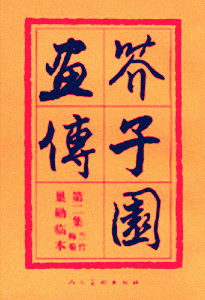 芥子園
畫傳
第二集 兰竹梅菊
巢勋临本
人民美術出版社